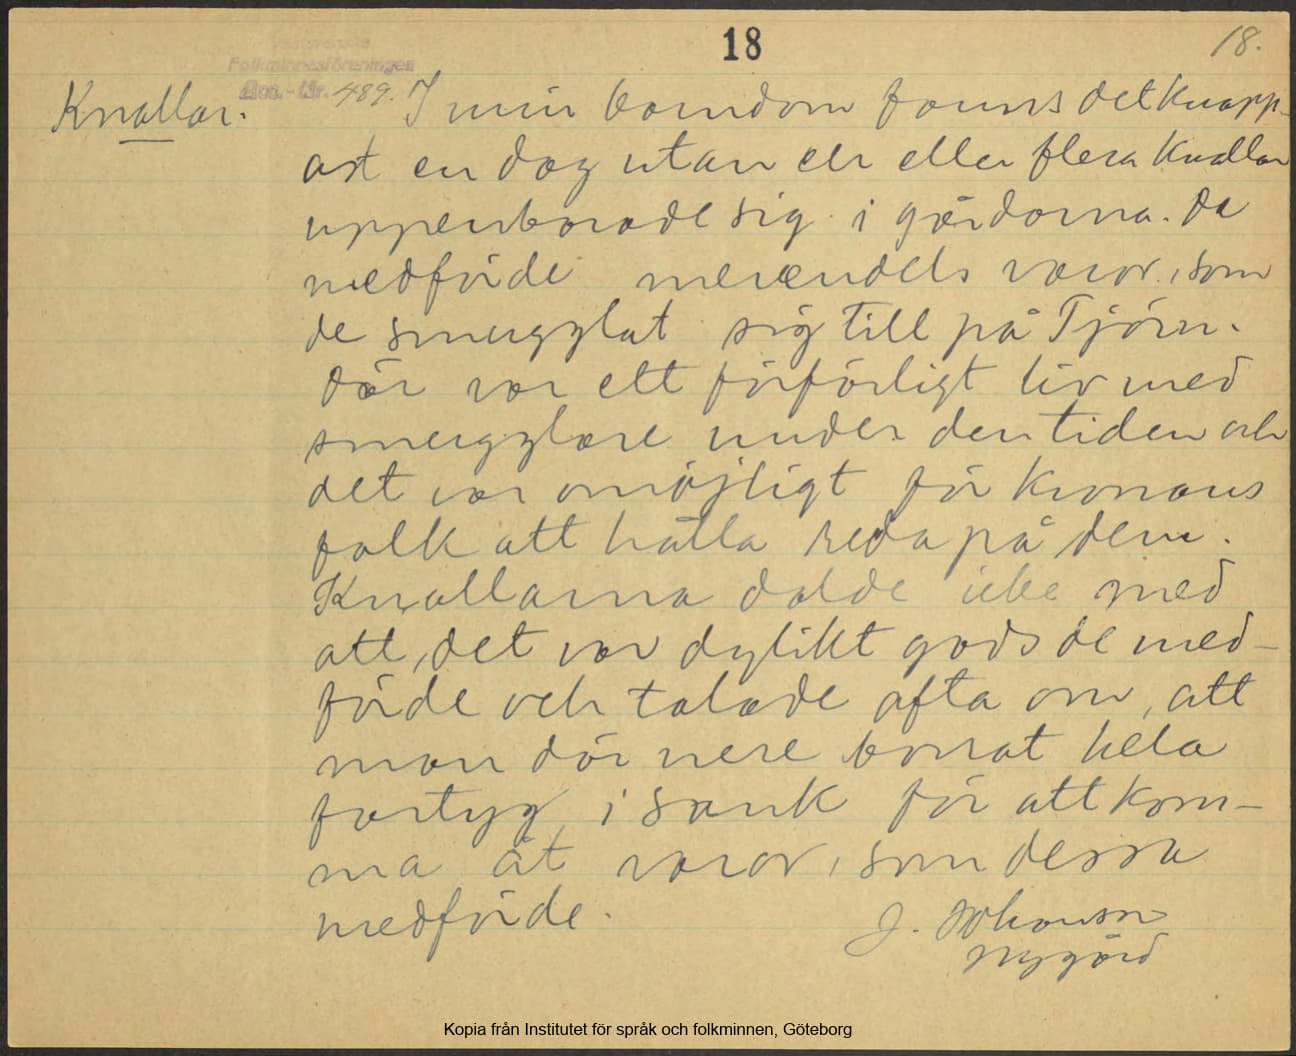 18
18.
Västsvenska
Folkminnesföreningen
Acc.-Nr. 489.
Knallar. I min barndom fanns det knapp-
ast en dag utan en eller flera knallar
uppenbarade sig i gårdarna. De
medförde merendels varor, som
de smugglat sig till på Tjörn.
Där var ett förfärligt liv med
smugglare under den tiden och
det var omöjligt för kronans
folk att hålla reda på dem.
Knallarna dolde icke med
att, det var dylikt gods de med-
förde och talade ofta om, att
man där nere borrat hela
fartyg i sank för att kom-
ma åt varor, som dessa
medförde.
J. Johansson
Nygård
Kopia från Institutet för språk och folkminnen, Göteborg